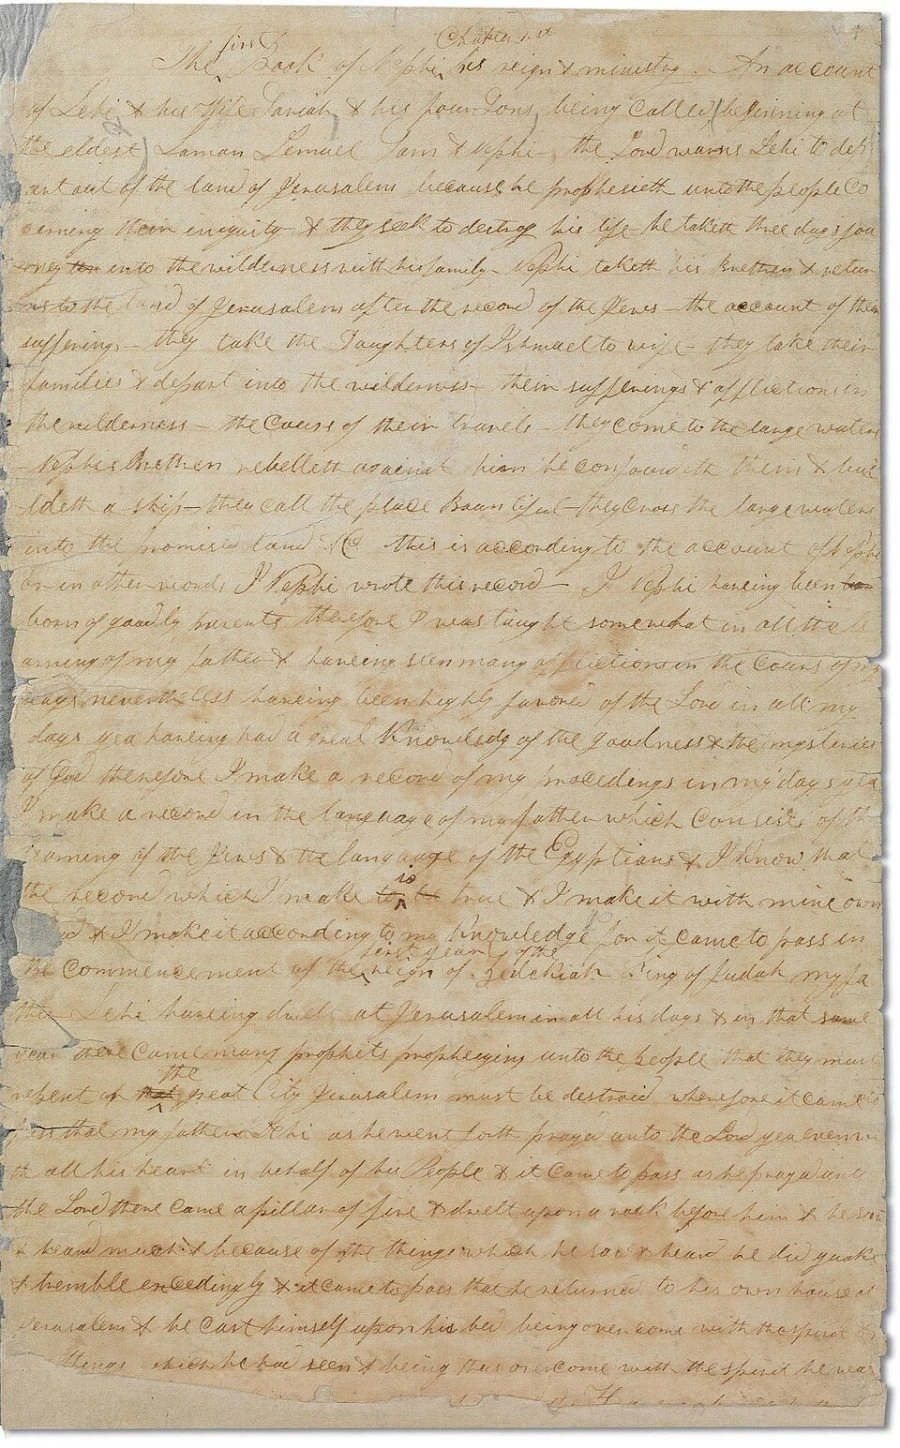 The first Book of Nephi Chapter 1st his reign & ministry. An account
of Lehi & his Wife Sariah & his four Sons, being called (beginning at
the eldest) Laman Lemuel Sam & Nephi— the Lord warns Lehi to dep
art out of the land of Jerusalem because he prophesieth unto the people co
cerning their iniquity & they seek to destroy his life he taketh three days jou
into the wilderness with his family— Nephi taketh his Brethren & retur
to the land of Jerusalem after the record of the Jews— the account of their
sufferings— they take the Daughters of Ishmael to wife— they take their
families & depart into the wilderness— their sufferings & afflictions in
the wilderness— the Cours of their travels— they come to the large waters
Nephis Brethren rebelleth against him he confoundeth them & bui
ldeth a ship— they call the place Bountiful— they Cross the large waters
into the promised land &C this is according to the account of Nephi
or in other words I Nephi wrote this record— I Nephi having been
born of goodly parents therefore I was taught somewhat in all the le
arning of my father & haveing seen many afflictions in the Cours of my
days nevertheless haveing been highly favored of the Lord in all my
days yea haveing had a great Knowledg of the goodness & the mysteries
of God therefore I make a record of my procedings in my days yea
I make a record in the language of my father which Consists of the
learning of the Jews & the language of the Egyptians & I know that
the record which I make to be is true & I make it with mine own
& I make it according to my Knowledge for it came to pass in
the commencement of the first year of the reign of Zedekiah King of Judah my fa
ther Lehi haveing dwelt at Jerusalem in all his days & in that same
year there came many prophets prophesying unto the people that they must
repent or that the great City Jerusalem must be destroid wherefore it came to
pass that my father Lehi as he went forth prayd unto the Lord yea even wi
th all his heart in behalf of his People & it came to pass as he prayd unto
the Lord there came a pillar of fire & dwelt upon a rock before him & he saw
& heard much & because of the things which he saw & heard he did quake
& tremble excedingly & it came to pass that he returned to his own house at
Jerusalem & he cast himself upon his bed being overcome with the spirit &
things which he had seen & being thus overcome with the spirit he was